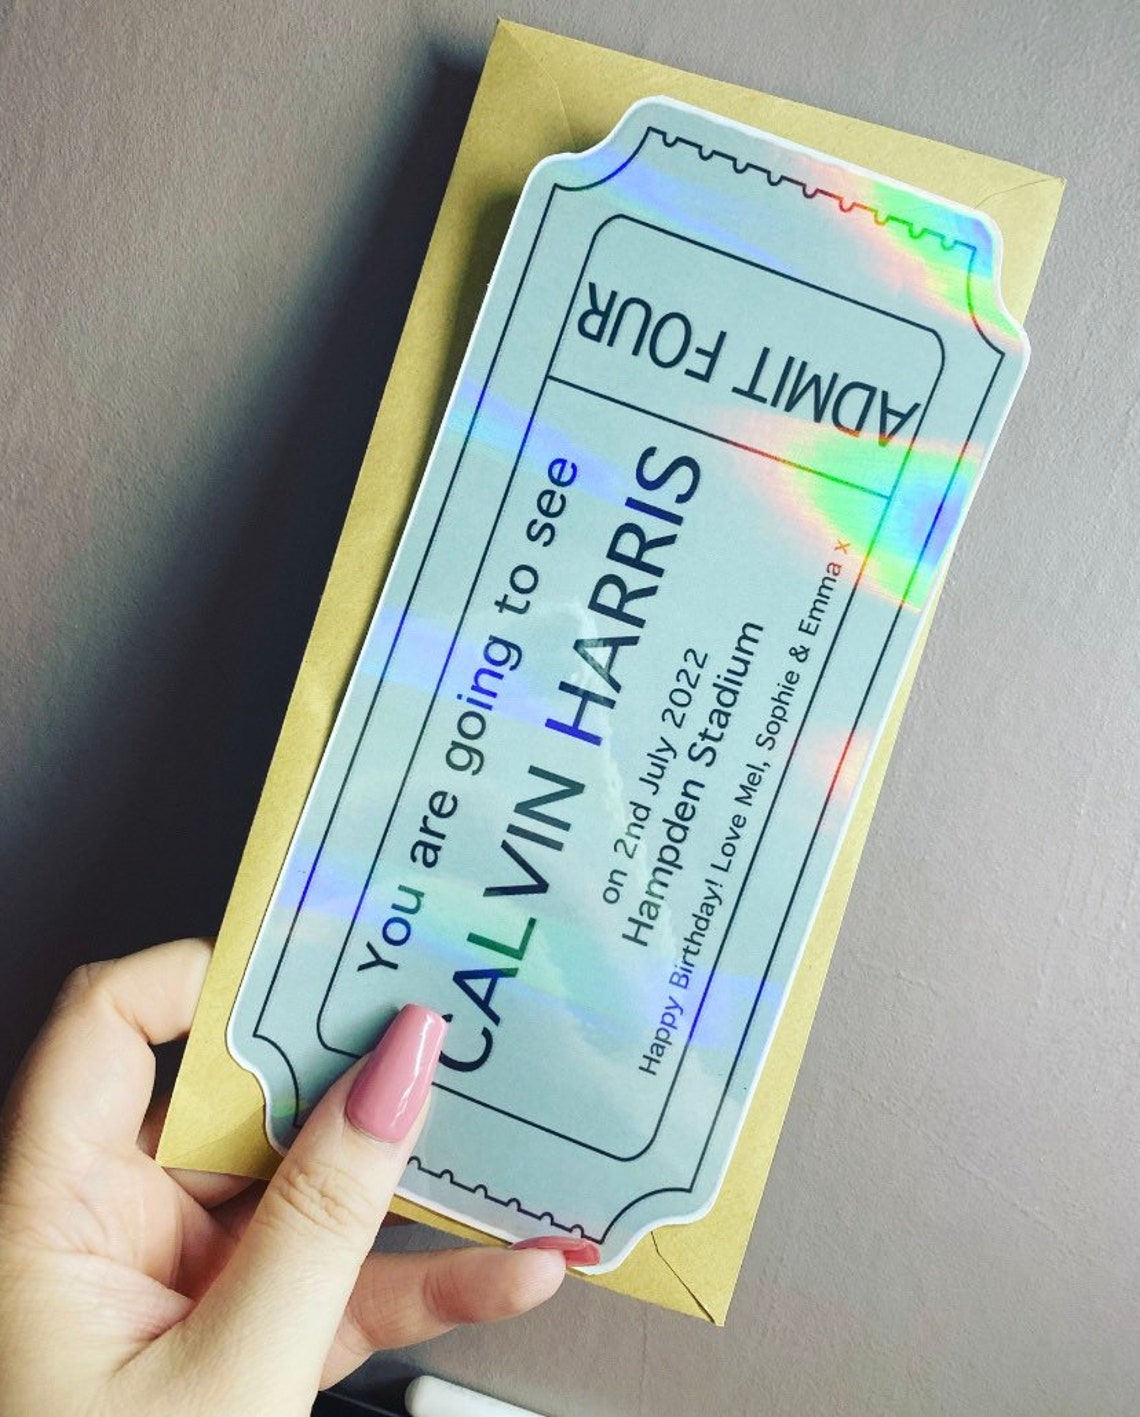 You are going to see
CALVIN HARRIS
on 2nd July 2022
Hampden Stadium
Happy Birthday! Love Mel, Sophie & Emma x
ADMIT FOUR